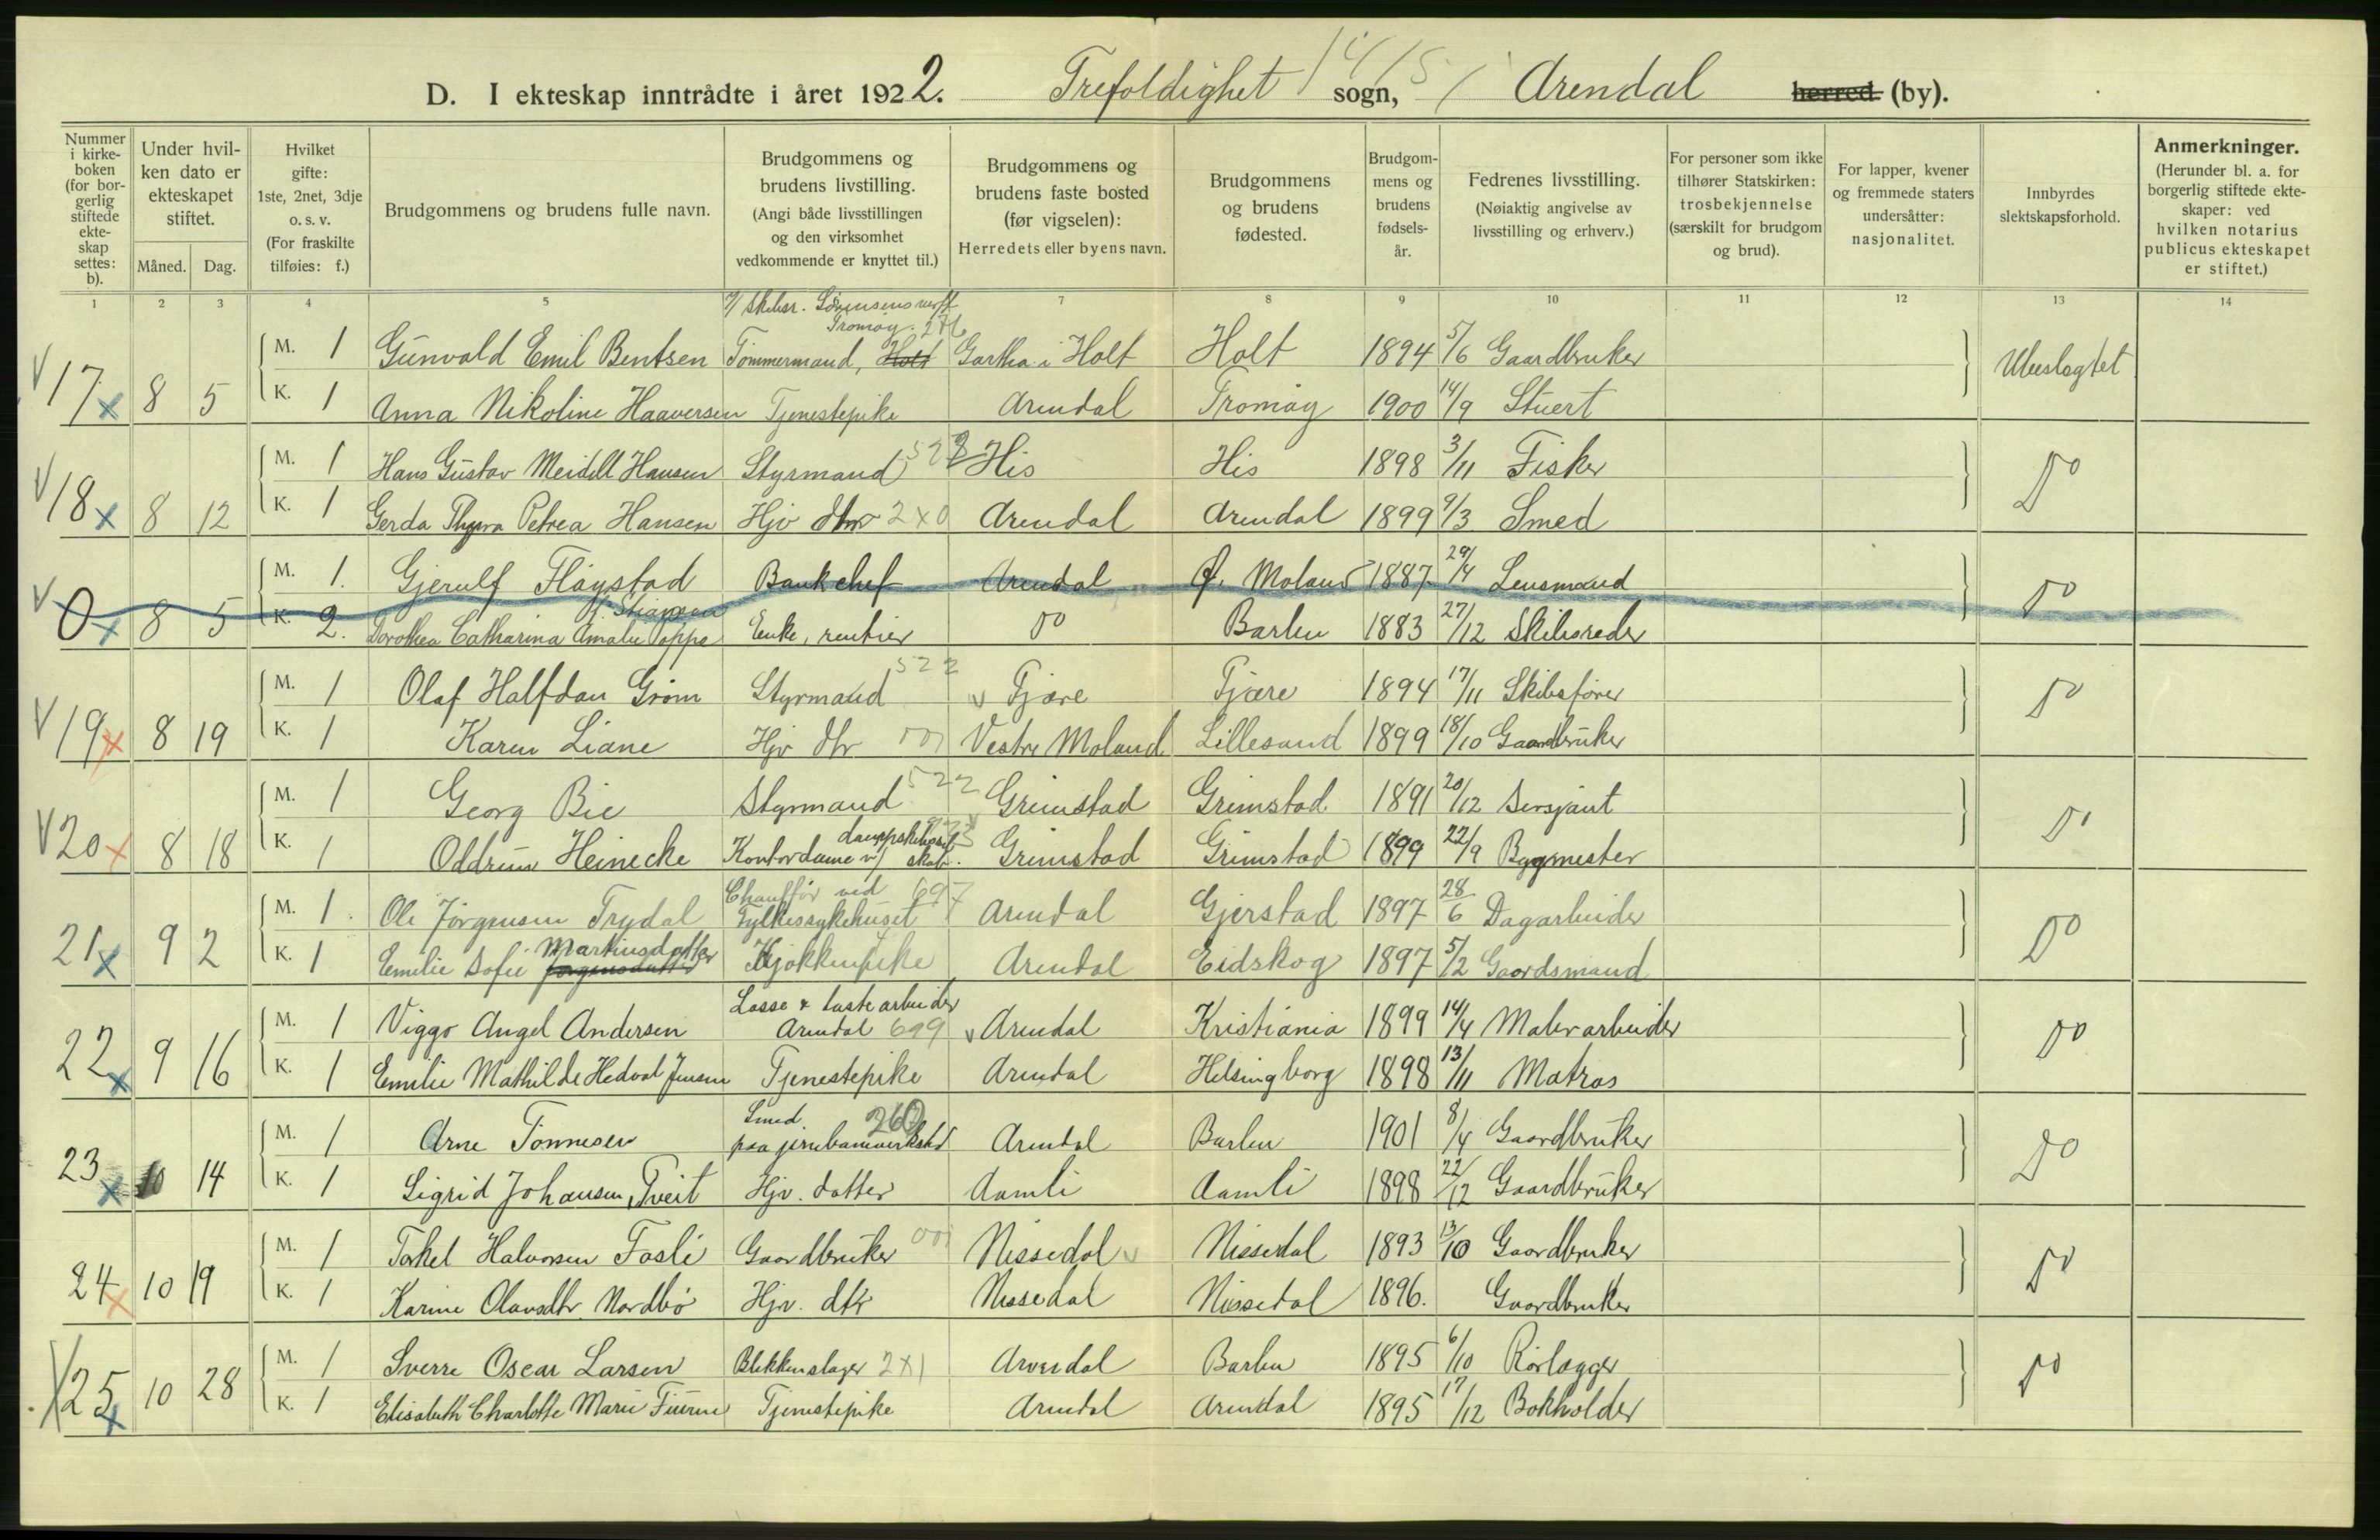 D. I ekteskap inntrådte i året 1922. Trefoldighet sogn, Arendal herred (by).
Nummer i kirkeboken (for borgerlig stiftede ekteskap settes: b).
Under hvilken dato er ekteskapet stiftet.
Måned. Dag.
Hvilket gifte: 1ste, 2net, 3dje o. s. v. (For fraskilte tilføies: f.)
Brudgommens og brudens fulle navn.
Brudgommens og brudens livstilling. (Angi både livsstillingen og den virksomhet vedkommende er knyttet til.)
Brudgommens og brudens faste bosted (før vigselen): Herredets eller byens navn.
Brudgommens og brudens fødested.
Brudgommens og brudens fødselsår.
Fedrenes livsstilling. (Nøiaktig angivelse av livsstilling og erhverv.)
For personer som ikke tilhører Statskirken: trosbekjennelse (særskilt for brudgom og brud).
For lapper, kvener og fremmede staters undersåtter: nasjonalitet.
Innbyrdes slektskapsforhold.
Anmerkninger. (Herunder bl. a. for borgerlig stiftede ekteskaper: ved hvilken notarius publicus ekteskapet er stiftet.)
1 2 3 4 5 7 8 9 10 11 12 13 14
v/ Skibsr. Sørensens verft
Tromøy. 276
M. 1 Gunvald Emil Bentsen Tømmermand, Holt Gartha i Holt Holt 1894 5/6 Gaardbruker Ubeslegtet
17 x 8 5 K. 1 Anna Nikoline Haaversen Tjenestepike Arendal Tromøy 1900 14/9 Stuert
M. 1 Hans Gustav Meidell Hansen Styrmand 522 His His 1898 3/11 Fisker Do
18 x 8 12 K. 1 Gerda Thyra Petrea Hansen Hjv dtr 2x0 Arendal Arendal 1899 9/3 Smed
M. 1. Gjerulf Fløystad Bankchef Arendal Ø. Moland 1887 29/4 Lensmand Do
0 x 8 5 K. 2. Dorothea Catharina Amalie Poppe Enke, rentier Do Barbu 1883 27/12 Skibsreder
M. 1 Olaf Halfdan Grøm Styrmand 522 v Fjære Fjære 1894 17/11 Skibsfører Do
19 x 8 19 K. 1 Karen Liane Hjv dtr 001 Vestre Moland Lillesand 1899 18/10 Gaardbruker
M. 1 Georg Bie Styrmand 522 Grimstad Grimstad 1891 20/12 Sersjant Do
20 x 8 18 K. 1 Oddrun Heinecke Kontordame v/ dampskibsselskab. Grimstad Grimstad 1899 22/9 Bygmester
M. 1. Ole Jørgensen Trydal Chauffør ved 697
Fylkessykehuset Arendal Gjerstad 1897 28/6 Dagarbeider Do
21 x 9 2 K. 1 Emilie Sofie Jørgensdatter Martinsdatter Kjøkkenpike Arendal Eidskog 1897 5/2 Gaardsmand
Losse & lastearbeider
M. 1 Viggo Angel Andersen Arendal 699 v Arendal Kristiania 1899 14/4 Malerarbeider Do
22 x 9 16 K. 1 Emilie Mathilde Hedval Jensen Tjenestepike Arendal Helsingborg 1898 13/11 Matros
Smed. 260
M. 1 Arne Tønnesen paa jernbaneverksted Arendal Barbu 1901 8/4 Gaardbruker Do
23 x 10 14 K. 1 Sigrid Johansen Tveit Hjv. datter Aamli Aamli 1898 22/12 Gaardbruker
M. 1 Torkel Halvorsen Fosli Gaardbruker 001 Nissedal v Nissedal 1893 13/10 Gaardbruker Do
24 x 10 19 K. 1 Karine Olavsdtr. Nordbø Hjv. dtr Nissedal Nissedal 1896. Gaardbruker
M. 1 Sverre Oscar Larsen Blikkenslager 2x1 Arendal Barbu 1895 6/10 Rørlægger Do
25 x 10 28 K. 1 Elisabeth Charlotte Marie Tjenestepike Arendal Arendal 1895 17/12 Bokholder